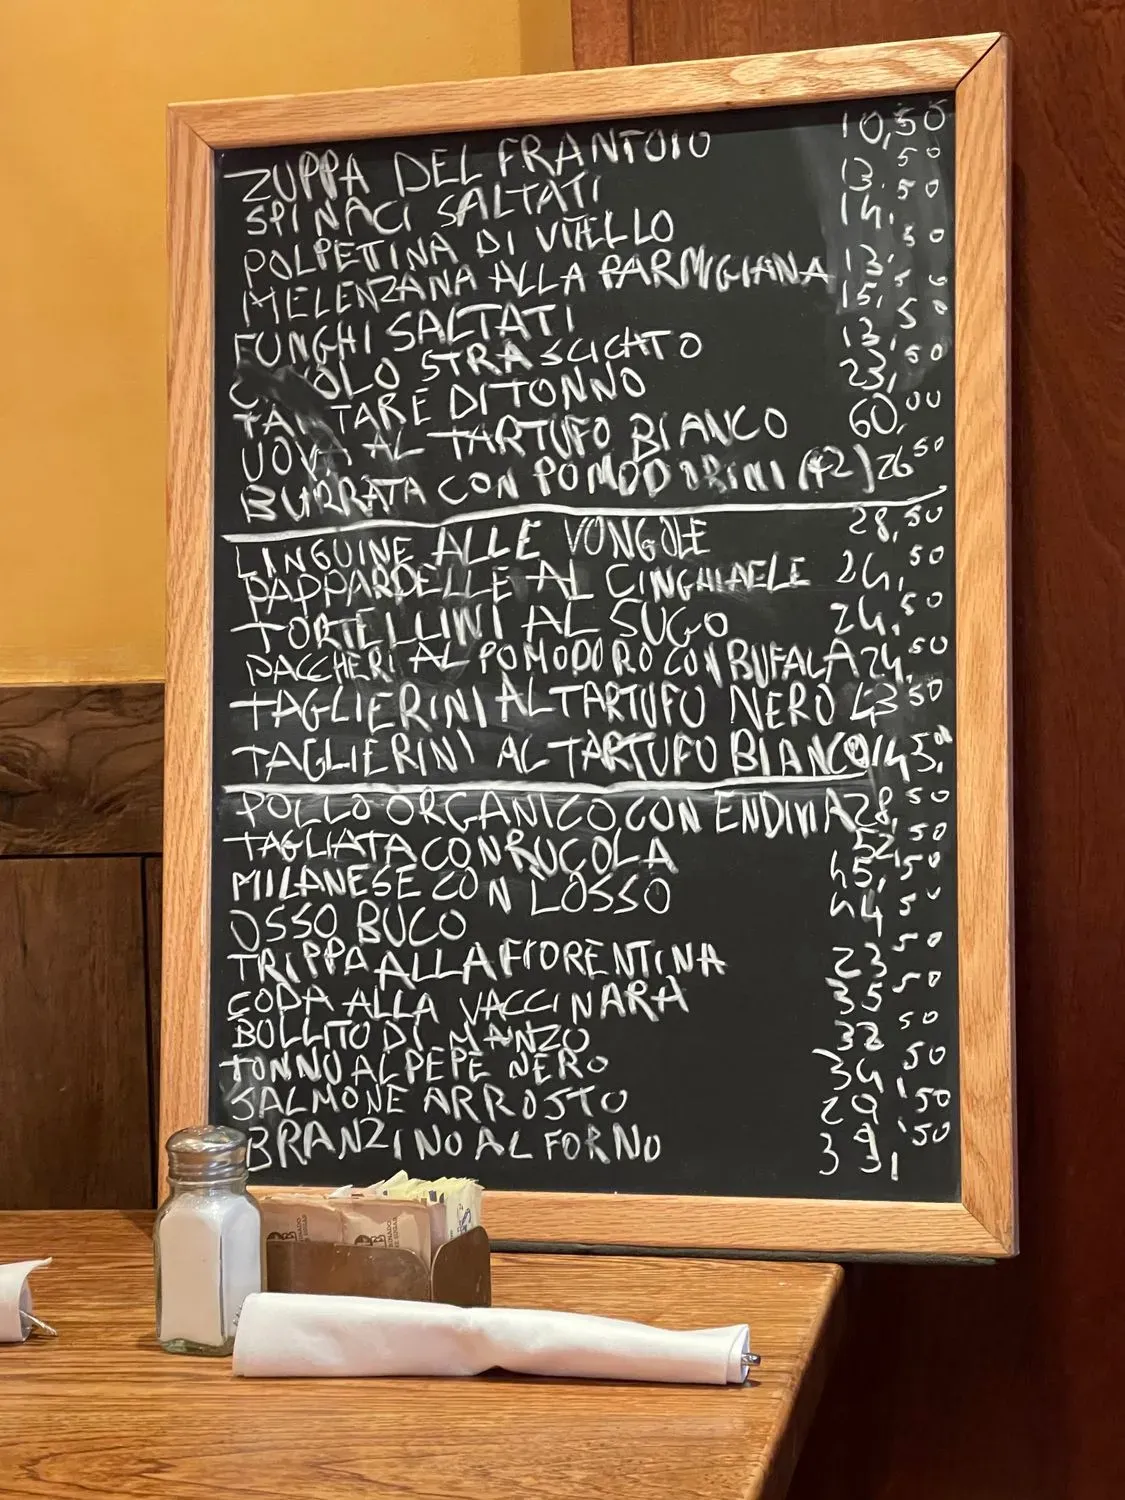 ZUPPA DEL FRANTOIO 10,50
SPINACI SALTATI 13.50
POLPETTINA DI VITELLO 14.50
MELENZANA ALLA PARMIGIANA 13.50
FUNGHI SALTATI 15,50
STRASCICATO 13,50
TARTARE DI TONNO 23,50
UOVA AL TARTUFO BIANCO 60,00
BURRATA CON POMODORINI (42) 26 50
LINGUINE ALLE VONGOLE 28,50
PAPPARDELLE AL CINGHIAELE 24,50
TORTELLINI AL SUGO 24,50
PACCHERI AL POMODORO CON BUFALA 24,50
TAGLIERINI AL TARTUFO NERO 43 50
TAGLIERINI AL TARTUFO BIANCO
POLLO ORGANICO CON ENDIVIA 28,50
TAGLIATA CON RUCOLA 52,50
MILANESE CON LOSSO 45,50
OSSO BUCO 44 50
TRIPPA ALLA FIORENTINA 23 50
CODA ALLA VACCINARA 35 50
BOLLITO DI MANZO 32 50
TONNO AL PEPE NERO 34 50
SALMONE ARROSTO 29,50
BRANZINO AL FORNO 39,50